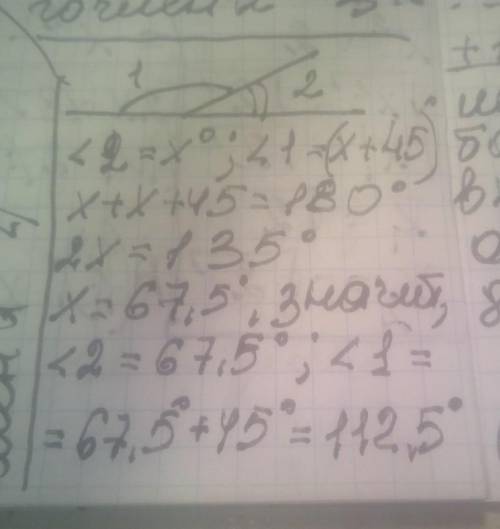 1
2
<2 = x°; <1=(x+45)
x+x+45=180°
2x=135°
x=67,5°, значит,
<2=67,5°; <1=
=67,5°+45°=112,5°